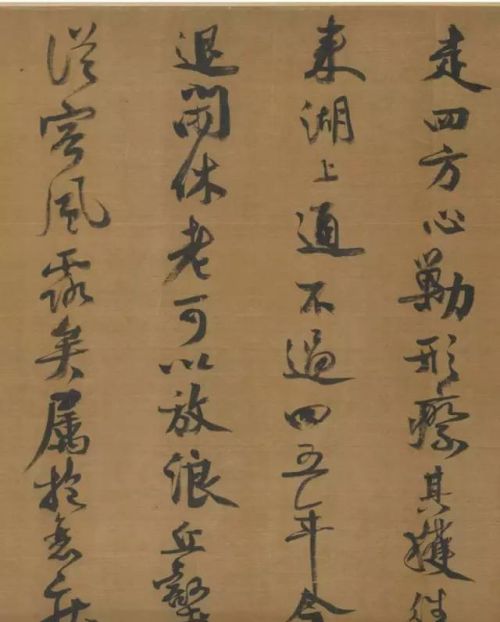 走四方心勤形瘵其獲往
来湖上通不過四五年今
退閒休老可以放浪丘壑
從容風露矣属於意